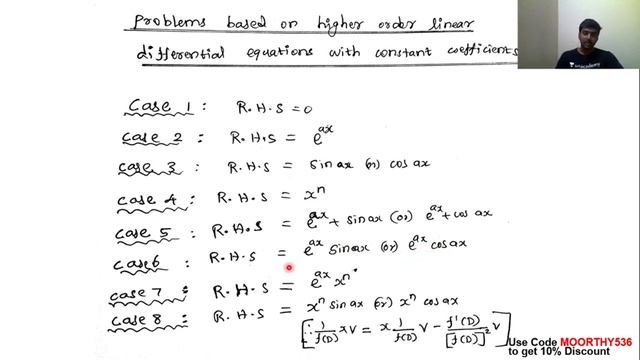 Problems based on higher order linear
differential equations with constant coefficients
Case 1 : R.H.S = 0
Case 2 : R.H.S = e^{ax}
Case 3 : R.H.S = sin ax (or) cos ax
Case 4 : R.H.S = x^n
Case 5 : R.H.S = e^{ax} + sin ax (or) e^{ax} + cos ax
Case 6 : R.H.S = e^{ax} sin ax (or) e^{ax} cos ax
Case 7 : R.H.S = e^{ax} x^n
Case 8 : R.H.S = x^n sin ax (or) x^n cos ax
[∵ 1/f(D) xV = x 1/f(D) V - f'(D)/[f(D)]^2 V]
unacademy
Use Code MOORTHY536
to get 10% Discount